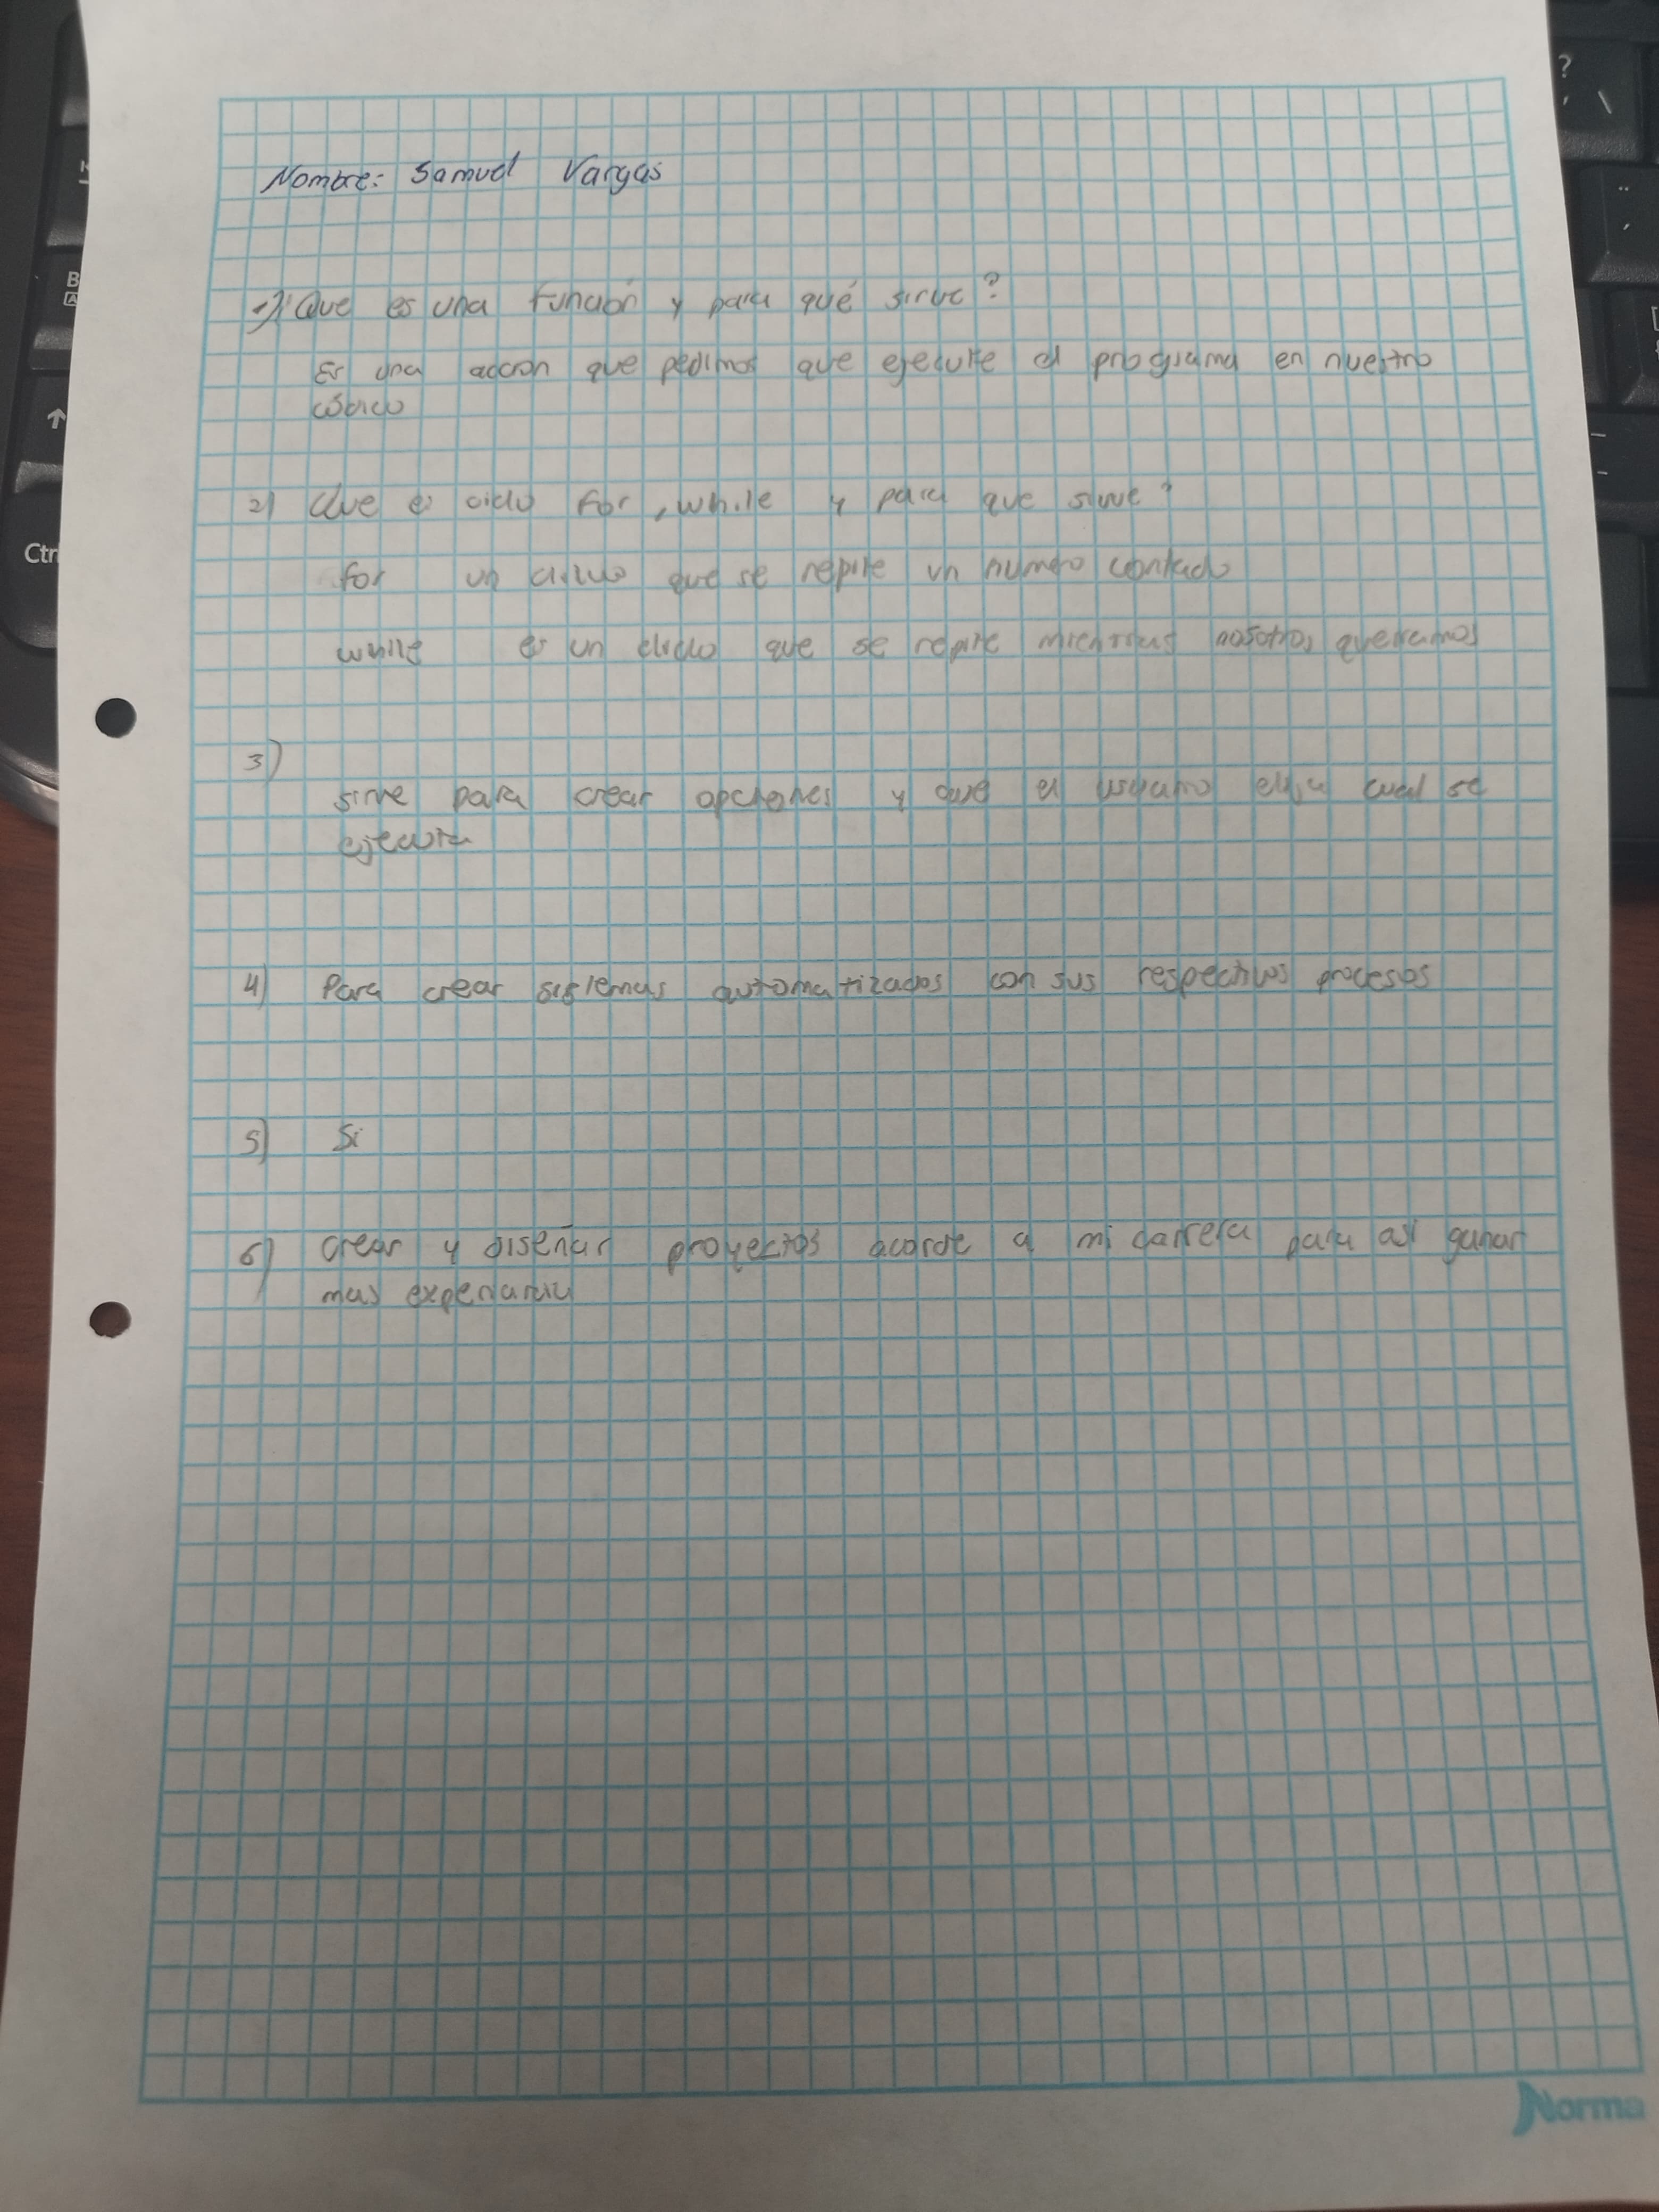 Nombre: Samuel Vargas
1) Que es una función y para qué sirve?
Es una accion que pedimos que ejecute el programa en nuestro
código
2) Que es ciclo for, while y para que sirve?
for un ciclo que se repite un numero contado
while es un ciclo que se repite mientras nosotros queramos
3)
sirve para crear opciones y que el usuario elija cual se
ejecuta
4) Para crear sistemas automatizados con sus respectivos procesos
5) Si
6) crear y diseñar proyectos acorde a mi carrera para asi ganar
mas experiencia
Norma
?
B
Ctrl